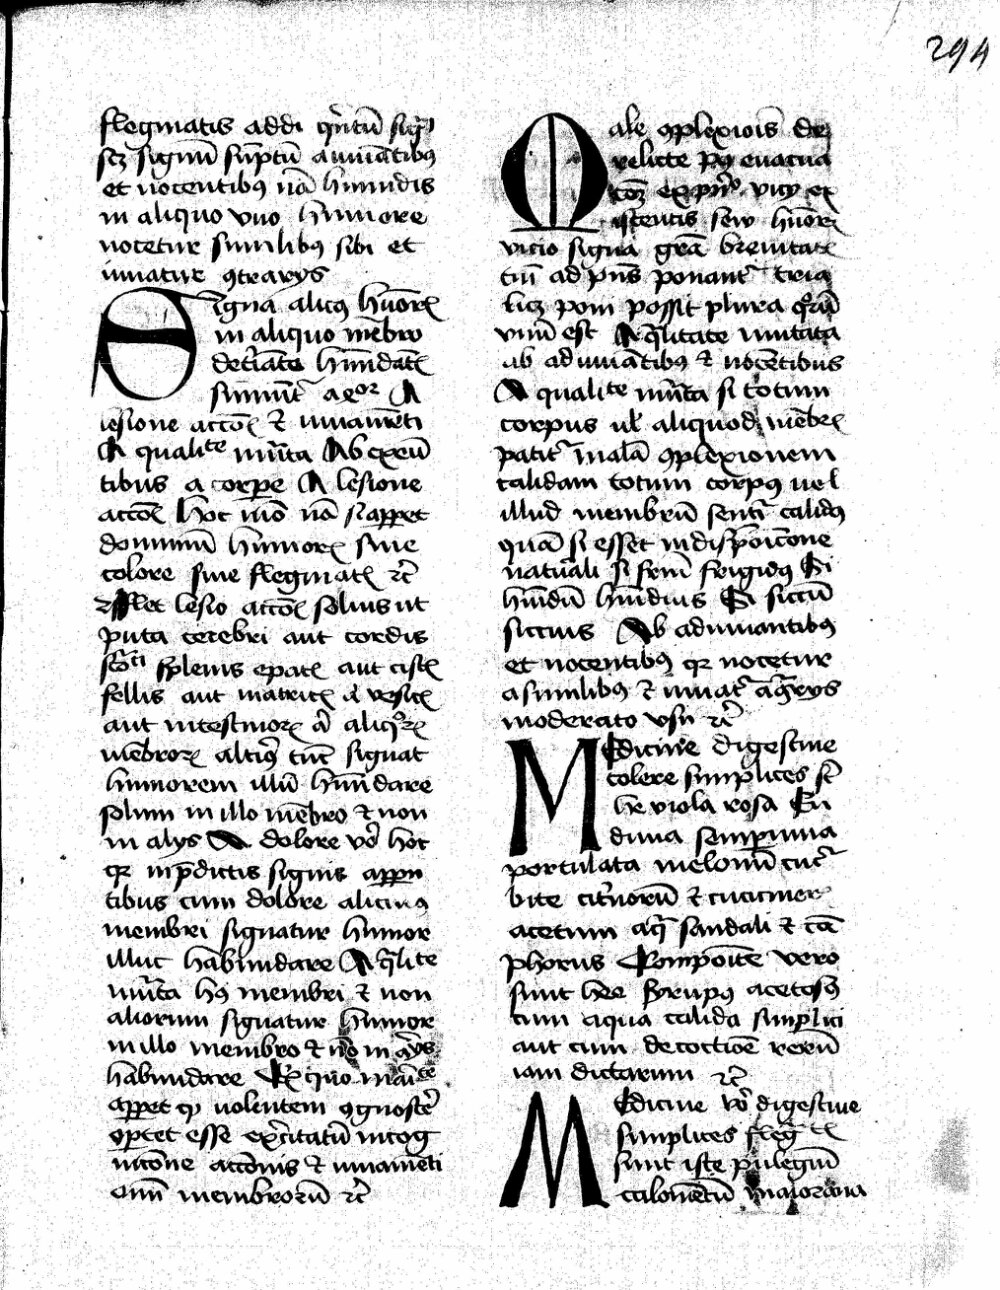 294
flegmatis addi qͥntū sig͛
scꝫ signū sūptū a iuuātibꝰ
et nocentibꝰ nā humidis
in aliquo vno humore
nocetur similibꝰ sibi et
iuuatur ꝯtrarijs
Signa alicꝰ hūoꝝ
in aliquo mēbro
hūndātꝭ
sumūt᷑ a
lesione accōꝭ ⁊ iuuamēti
A qualite mūta Ab exeū
tibus a corpe A lesione
accōꝭ hoc mō nā si apꝑet
domiuiū humoꝝ siue
colore siue flegmatꝭ ⁊c̄
lesio accōꝭ solius ut
puta cerebri aut cordis
splenis epatꝭ aut cistꝭ
fellis aut matricꝭ a᷑ vesicꝭ
aut intestinoꝝ a᷑ aliqͦꝝ
mēbroꝝ altiꝰ tūc signat
humorem illū hūndare
solum in illo mēbro ⁊ non
in alijs A dolore vͦ hoc
qꝛ in p̄dictis signis appn
tibus cum dolore alicuiꝰ
membri signatur humor
illuc habūndare A q̄lite
mūta hꝰ membri ⁊ non
aliorum signatur humor
in illo membro ⁊ nō in alijs
habundare Ex quo
apꝑet ꝙ uolentem ꝯgnoscē
oꝑtet esse exͨitatū in cog
nicōne accōnis ⁊ iuuamēti
oīm membrorū ⁊c̄
Male ꝯplexiōis de
relicte pꝰ euacua
cōꝫ ex pͥmo vicio ex
istentis siue hūoꝝ
vicio signa grā breuitatꝭ
tm̄ ad p̄ns ponant᷑ tria
licꝫ poni possit plura qͦꝝ
vnū est A q̄litate mutata
ab adiuuātibꝰ ⁊ nocētibus
A qualite mūta si totum
corpus ul̓ aliquod mēbꝝ
patit᷑ malā ꝯplexionem
calidam totum corpꝰ uel
illud membrū sentit᷑ calidꝰ
quā si esset in disp̄oicōne
naturali si frīm frigidꝰ Si
hūdū hūidius Si siccū
siccius Ab adiuuantibꝰ
et nocentibꝰ qꝛ nocetur
a similibꝰ ⁊ iuuat᷑ a ꝯͣrijs
moderato vsu ⁊c̄
Medicine digestiue
colere simplices sͭ
he viola rosa En
diuia semꝑuiua
portulata melonū cucͬ
bite citͥnorū ⁊ cucumeꝝ
acetum aq̄ sandali ⁊ cā
phorus Compoīte vero
sunt hee syrupꝰ acetosꝰ
cum aqua calida simplici
aut cum decoctiōe rerū
iam dictarum ⁊c̄
Medicine vͦ digestiue
simplices fleḡtꝭ
sunt iste pulegiū
calomētū maiorana